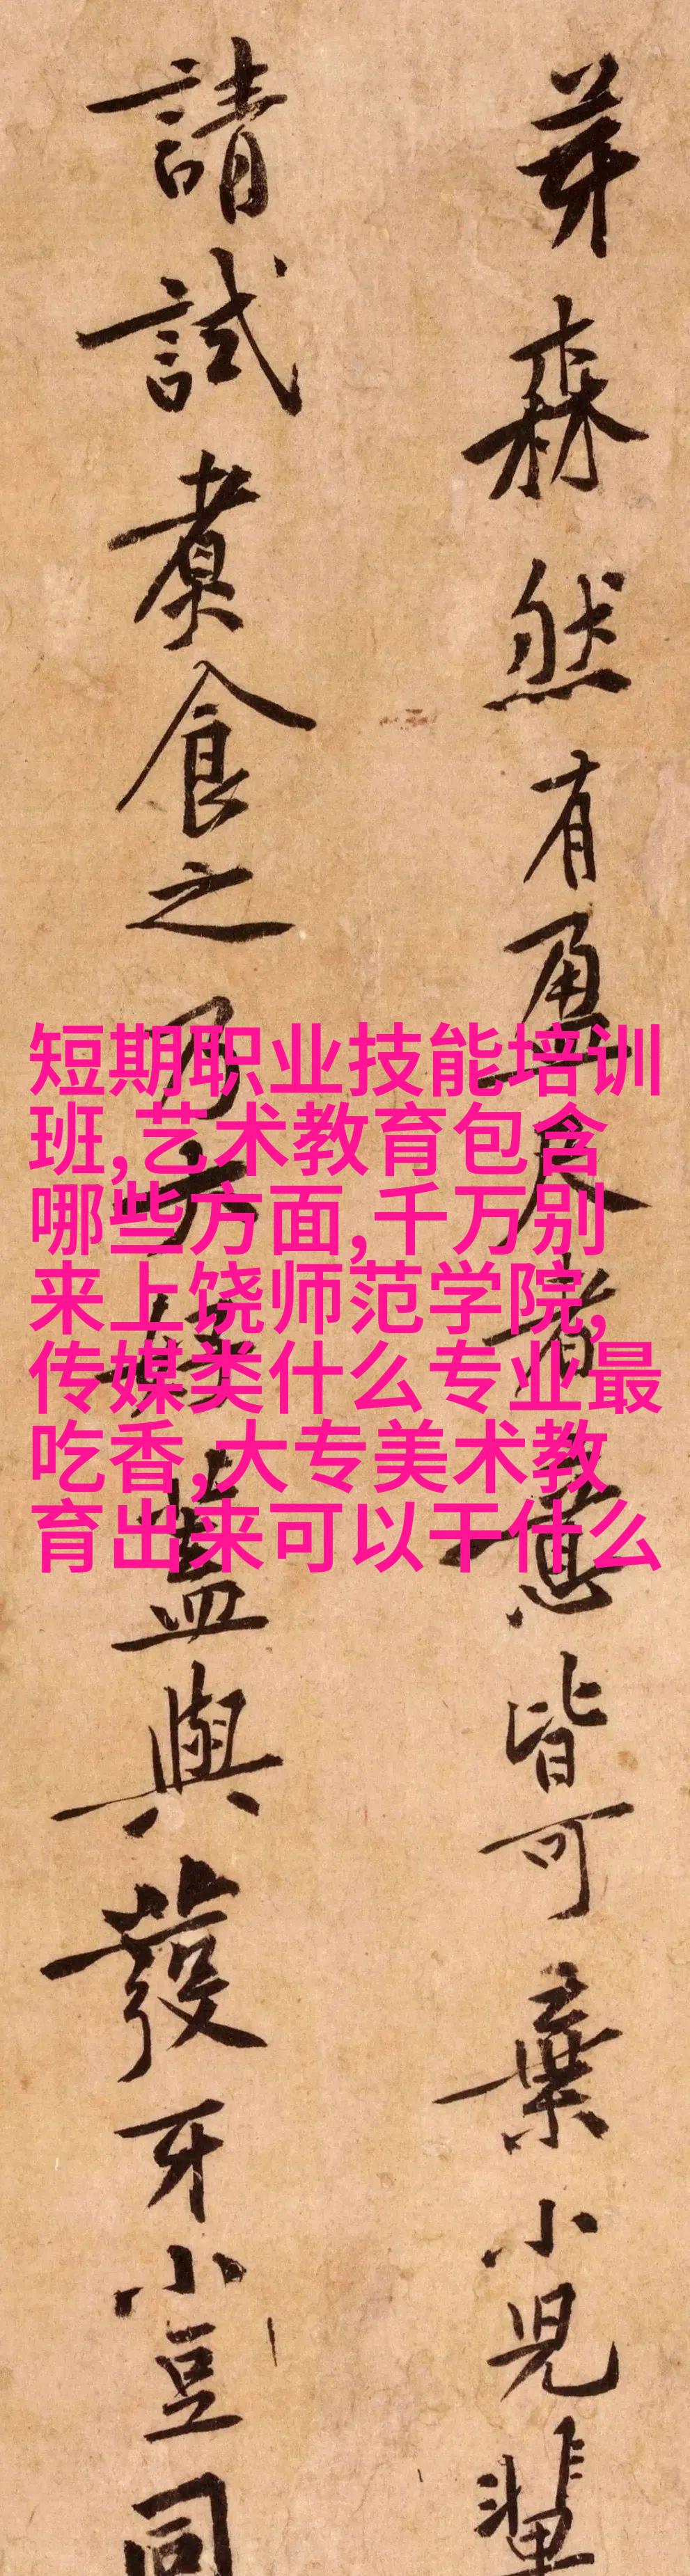 芽森然有盈尺者意皆可棄小兒輩
請試煮食之乃大好蓋與發牙小豆同
短期职业技能培训
班,艺术教育包含
哪些方面,千万别
来上饶师范学院,
传媒类什么专业最
吃香,大专美术教
育出来可以干什么